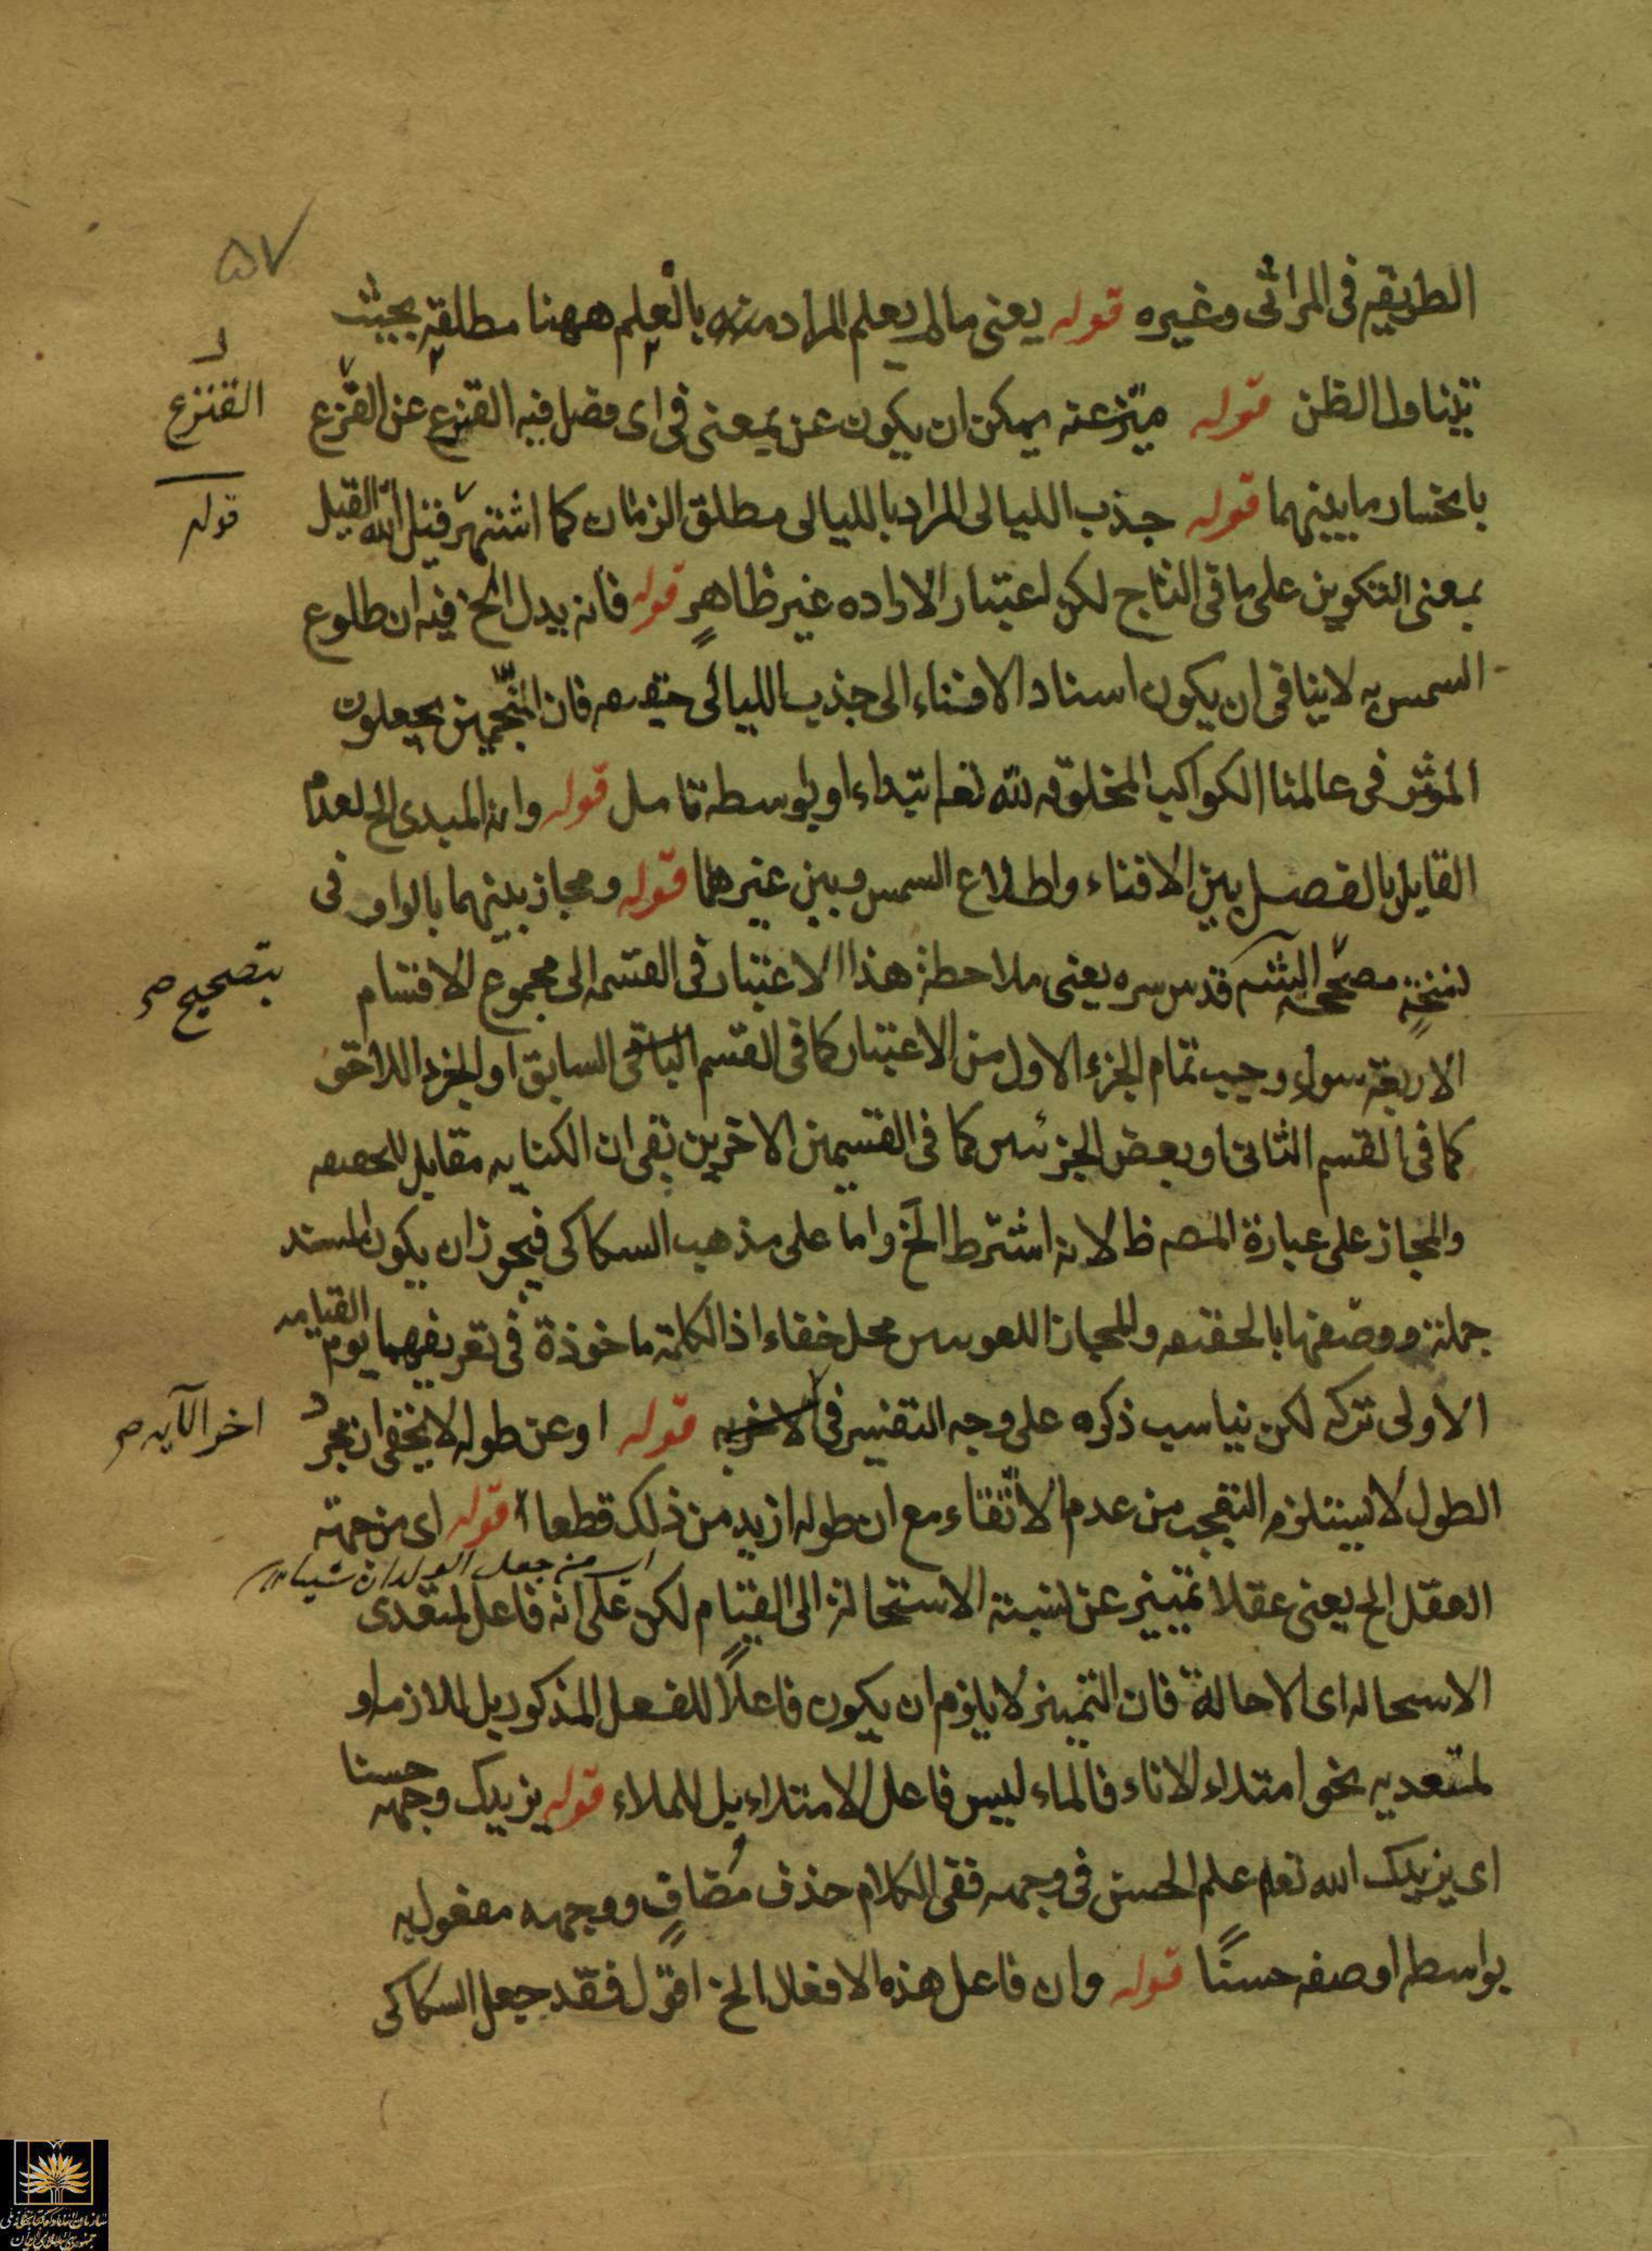 ٥٧
الطريقه فى المراثى وغيره قوله يعنى ما لم يعلم المراد بالعلم ههنا مطلقه بحيث
يتناول الظن قوله ميز عنه يمكن ان يكون عن بمعنى فى اى فصل فيه القنزع عن القنزع
القنزع
بانحسار ما بينهما قوله جذب الليالى المراد بالليالى مطلق الزمان كما اشتهر قيل الله القيل
قوله
بمعنى التكوين على ما فى التاج لكن اعتبار الاراده غير ظاهر قوله فانه يدل الخ فيه ان طلوع
السمس به لا ينافى ان يكون اسناد الافناء الى جذب الليالى حقيقه فان المنجمين يجعلون
المؤثر فى عالمنا الكواكب المخلوقه لله تعا ابتداء او بواسطه تامل قوله وانه المبدى الخ لعدم
القايل بالفصل بين الافناء واطلاع السمس وبين غيرهما قوله ومجاز بينهما بالواو فى
نسخة مصححة قدس سره يعنى ملاحظة هذا الاعتبار فى القسمه الى مجموع الاقسام
بتصحيح صح
الاربعة سواء وجب تمام الجزء الاول من الاعتبار كما فى القسم السابق او الجزء اللاحق
كما فى القسم الثانى او بعض الجزئين كما فى القسمين الاخرين بقى ان الكنايه مقابل للحقيقه
والمجاز على عبارة المص ظ لانه اشترط الخ واما على مذهب السكاكى فيجوز ان يكون المسند
جملة ووصفها بالحقيقه والمجاز اللغويين محل خفاء اذ الكلمة ماخوذة فى تعريفهما يوم القيامه
الاولى تركه لكن يناسب ذكره على وجه التفسير فى قوله او عن طوله لا يخفى ان مجرد
اخر الآيه صح
الطول لا يستلزم التعجب من عدم الاتقاء مع ان طوله ازيد من ذلك قطعا قوله اى من جهة
اى من جعل الولدان شيبا
العقل الخ يعنى عقلا تمييز عن نسبة الاستحالة الى القيام لكن على انه فاعل لمتعدى
الاسحاله اى الاحالة فان التمييز لا يلزم ان يكون فاعلا للفعل المذكور بل للازمه او
لمتعديه نحو امتلاء الاناء فالماء ليس فاعل الامتلاء بل للملاء قوله يزيدك وجهه حسنا
اى يزيدك الله تعا علم الحسن فى وجهه ففى الكلام حذف مضاف ووجهه مفعول به
بواسطه اوصفه حسنًا قوله وان فاعل هذه الافعال الخ اقول فقد جعل السكاكى